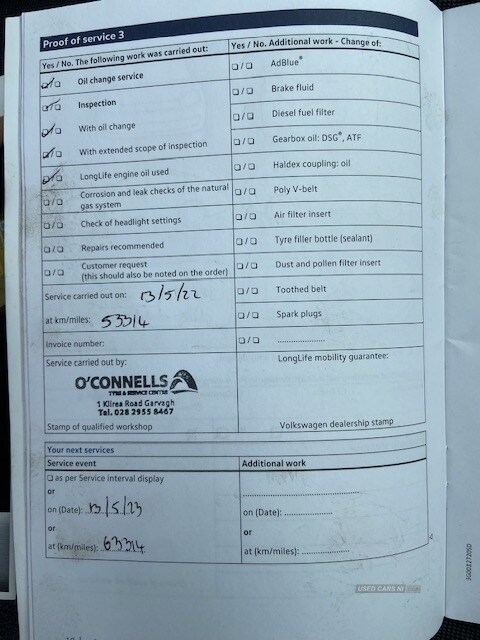 Proof of service 3
Yes / No. The following work was carried out:
Oil change service
Inspection
With oil change
With extended scope of inspection
LongLife engine oil used
Corrosion and leak checks of the natural
gas system
Check of headlight settings
Repairs recommended
Customer request
(this should also be noted on the order)
Service carried out on: 13/5/22
at km/miles: 53314
Invoice number:
Service carried out by:
O'CONNELLS
TYRE & SERVICE CENTRE
1 Kilrea Road Garvagh
Tel. 028 2955 8467
Stamp of qualified workshop
Yes / No. Additional work - Change of:
AdBlue®
Brake fluid
Diesel fuel filter
Gearbox oil: DSG®, ATF
Haldex coupling: oil
Poly V-belt
Air filter insert
Tyre filler bottle (sealant)
Dust and pollen filter insert
Toothed belt
Spark plugs
......................
LongLife mobility guarantee:
Volkswagen dealership stamp
Your next services
Service event
as per Service interval display
or
on (Date): 13/5/23
or
at (km/miles): 63314
Additional work
on (Date): ................
or
at (km/miles): ................
USED CARS NI